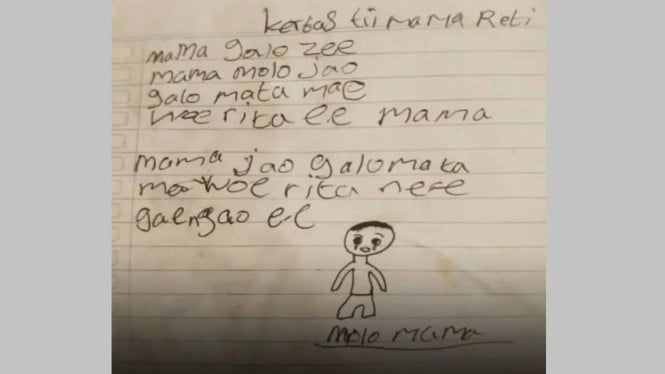 Kertas tii mama Reti
mama galo zee
mama molo jao
galo mata mae
woe rita ee mama
mama jao galo mata
mae woe rita ne-e
gaengao ee
molo mama